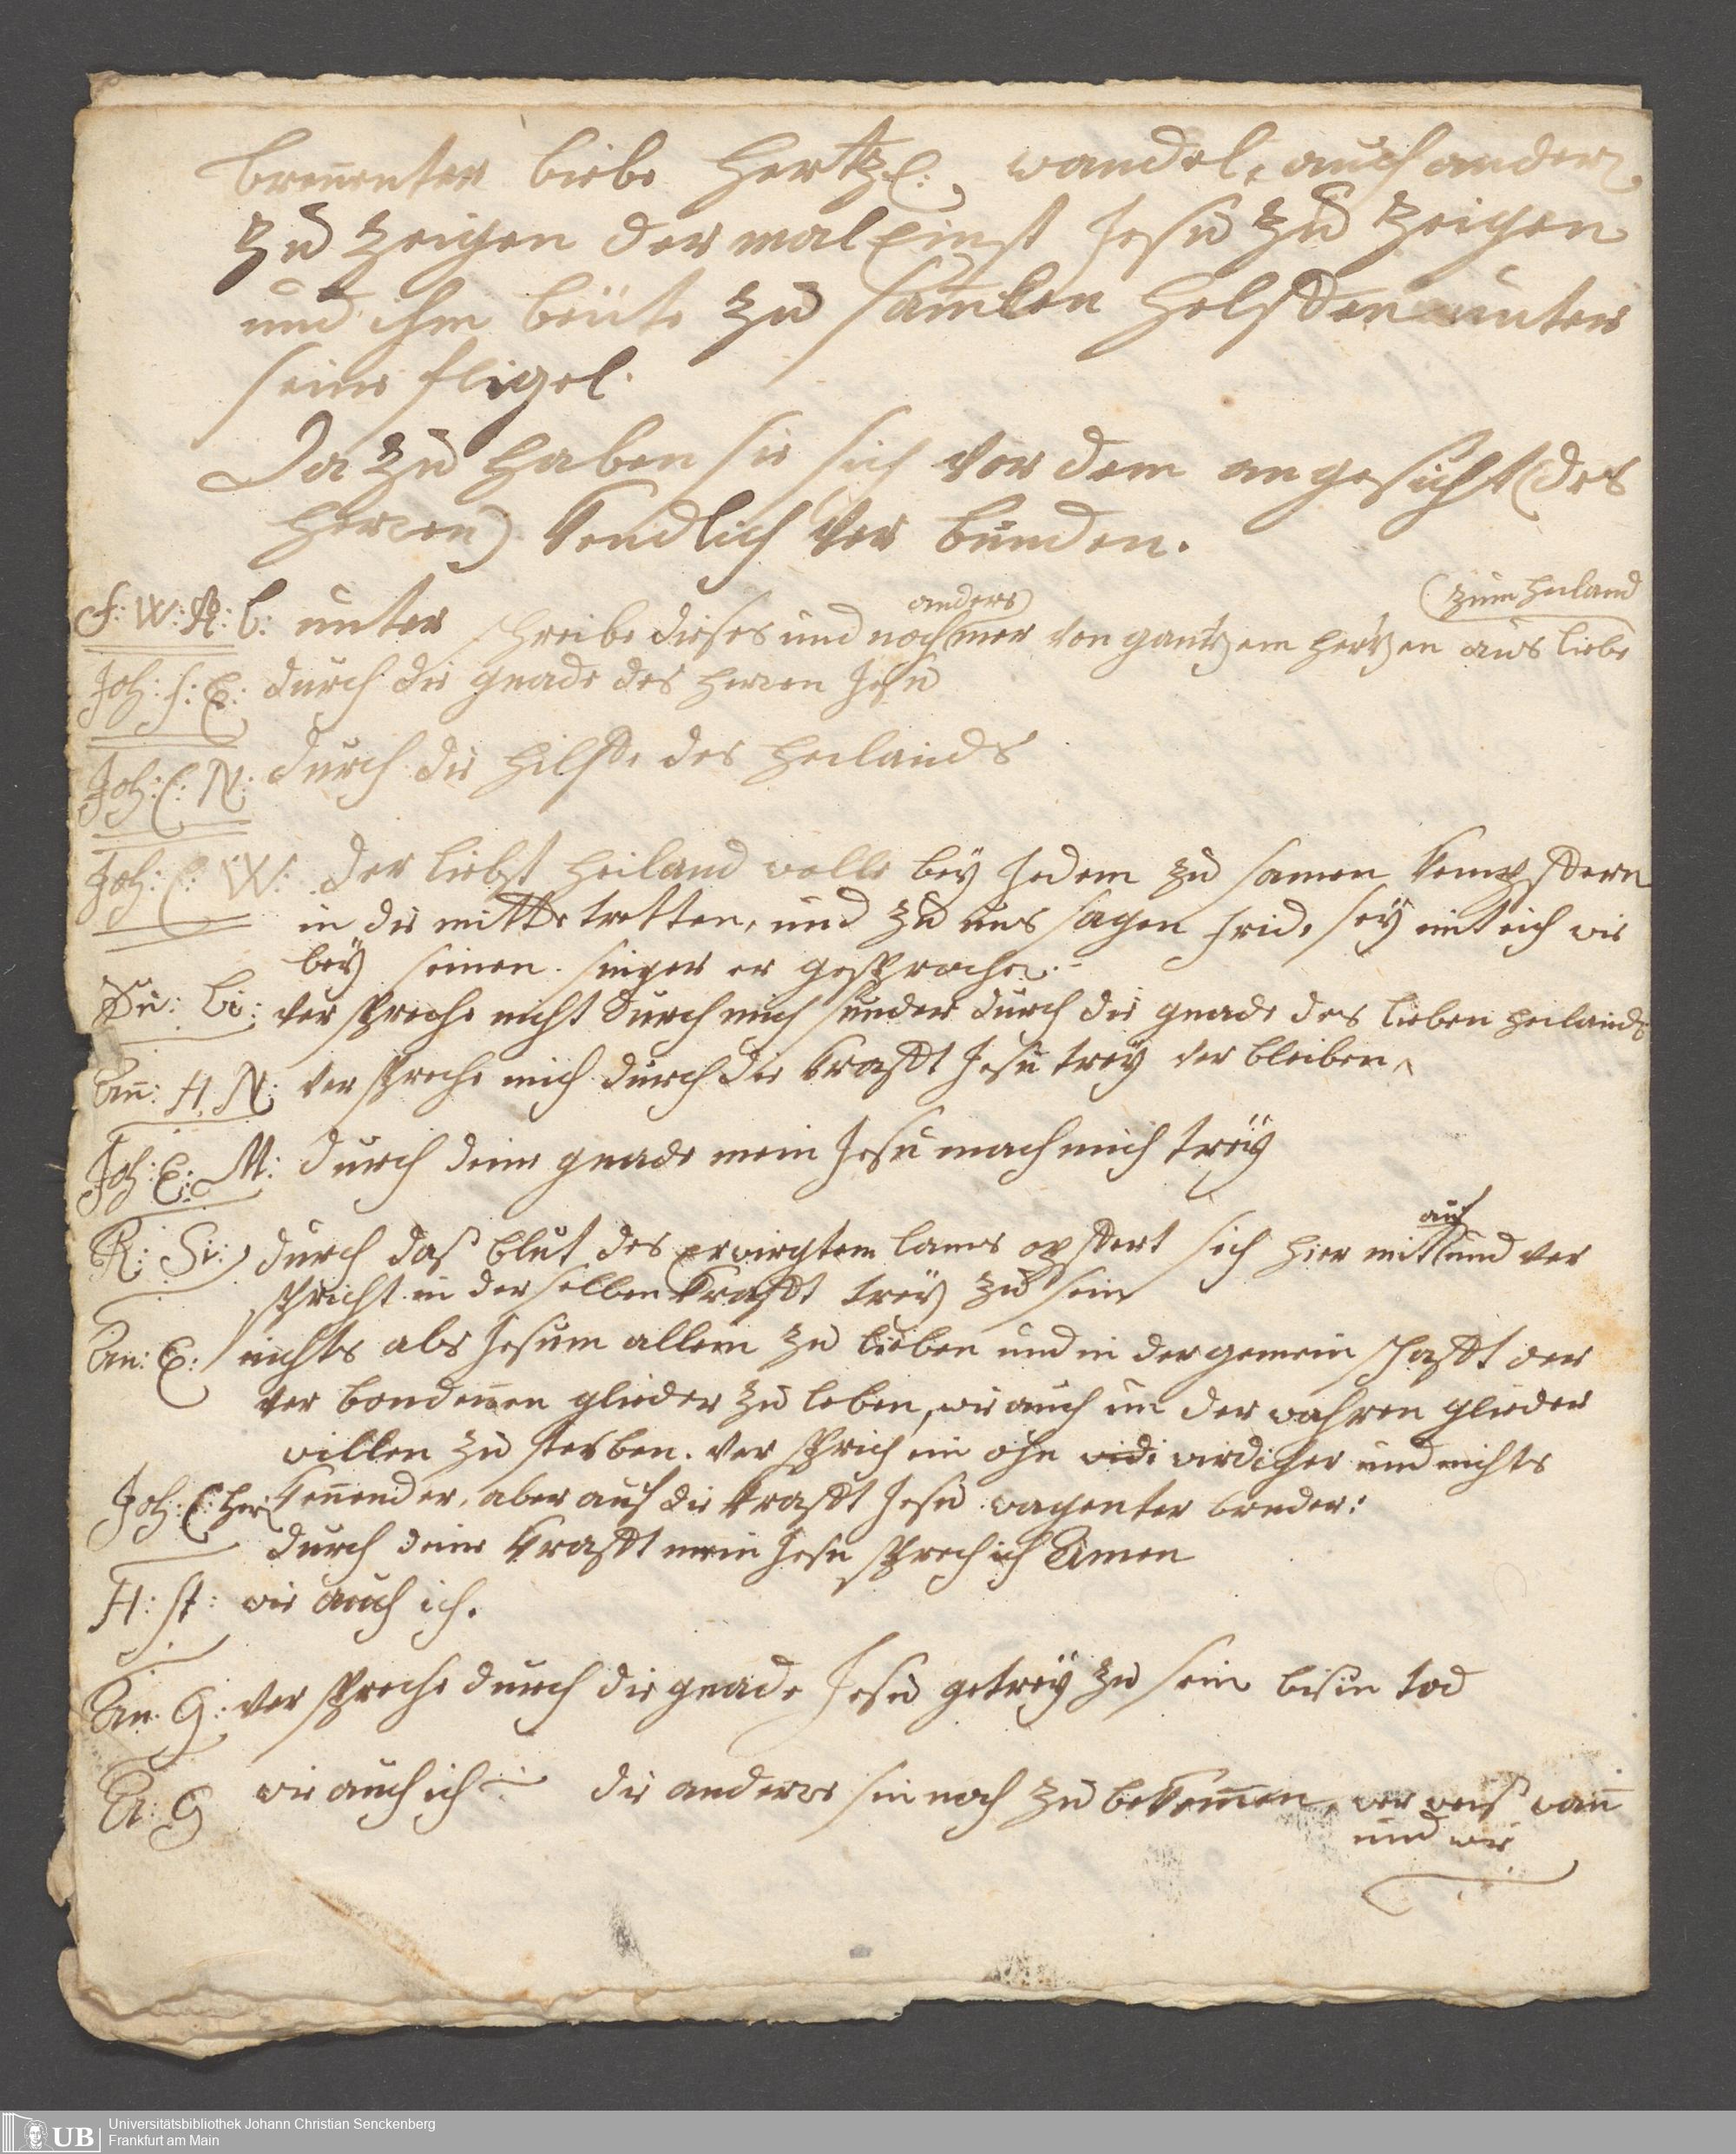 breñenter liebe Hertzl: wandel, auch andern
zu zeigen der mal einst Jesu zu zeigen
und ihm beute zu samlen helffen unter
seine fligel.
Da zu haben sie sich vor dem angesicht (des
Herren) kendlich ver bunden.
F: W: R: C: unter schreibe dieses und noch mer von gantzem hertzen aus liebe
anders
(zum heiland
Joh: f: E: durch die gnade des herren Jesu
Joh: C: N: durch die hilffe des heilands
Joh: C: W: der liebst heiland wolle bey Jedem zu samen
in die mitte tretten, und zu uns sagen frid, sey mit eich wie
bey seinen Jinger er gesprochen.
Su: Li: ver spreche nicht durch mich sunder durch die gnade des lieben heilands
An: H. N: ver spreche mich durch die krafft Jesu trey ver bleiben
Joh: E: M: durch deine gnade mein Jesu mach mich trey
R: Si: durch daß blut des erwirgtem lams opffert sich hier mit und ver
auf
spricht in der selben krafft trey zu sein
An: E: nichts als Jesum allein zu lieben und in der gemein schafft der
ver bondeñen glieder zu leben, wie auch um der wahren glieder
willen zu sterben. ver sprich ein ohn widi wirdicher und nichts
Joh: C: Her: keñender, aber auf die krafft Jesu wagenter bruder:
durch deine krafft mein Jesu sprech ich Amen
H: st: wie auch ich.
An. G: ver spreche durch die gnade Jesu getrey zu sein bis in tod
A: G wie auch ich die andere sin noch zu bekomen, wer weiß wañ
und wie
UB Universitätsbibliothek Johann Christian Senckenberg
Frankfurt am Main